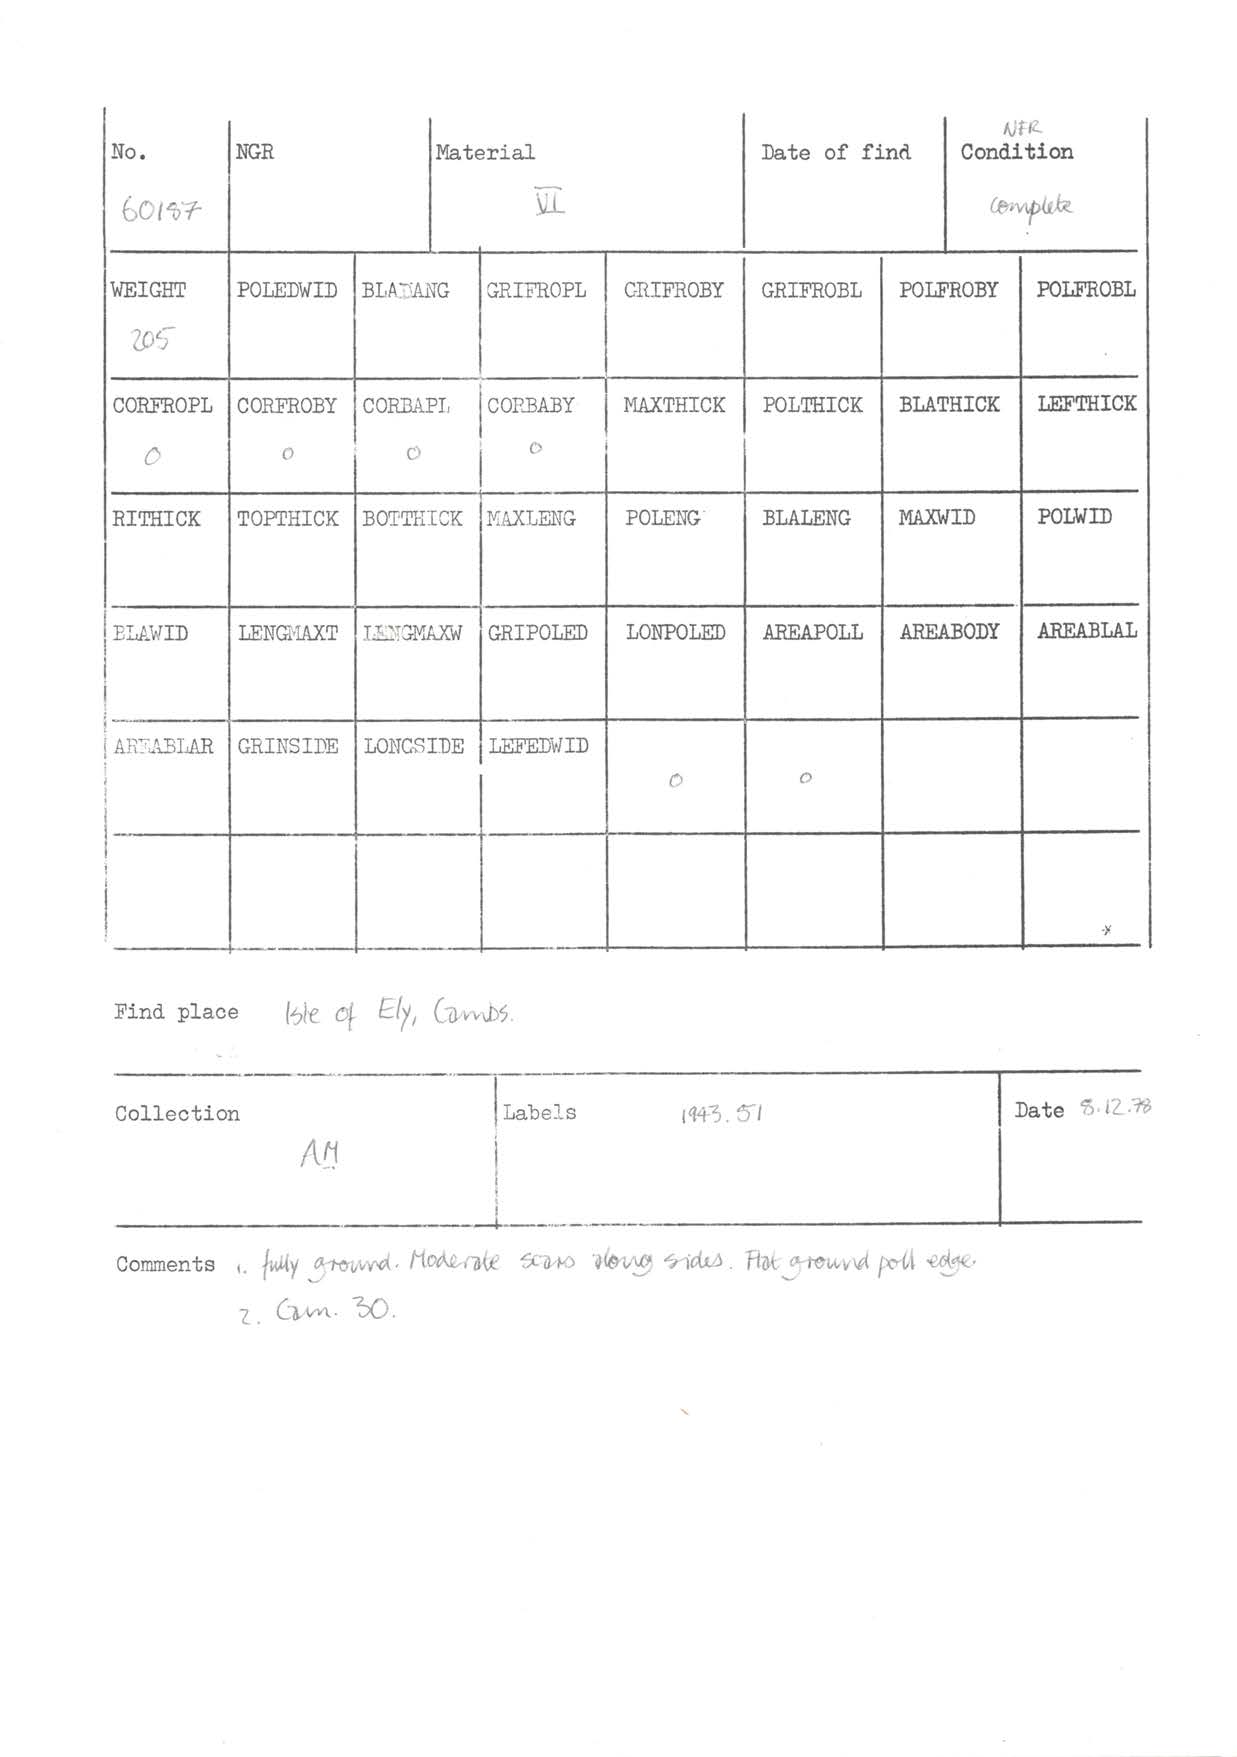 NFR
No. NGR Material Date of find Condition
60187 VI complete
WEIGHT POLEDWID BLADANG GRIFROPL GRIFROBY GRIFROBL POLFROBY POLFROBL
205
CORFROPL CORFROBY CORBAPL CORBABY MAXTHICK POLTHICK BLATHICK LEFTHICK
0 0 0 0
RITHICK TOPTHICK BOTTHICK MAXLENG POLENG BLALENG MAXWID POLWID
BLAWID LENGMAXT LENGMAXW GRIPOLED LONPOLED AREAPOLL AREABODY AREABLAL
AREABLAR GRINSIDE LONGSIDE LEFEDWID
0 0
*
Find place Isle of Ely, Cambs.
Collection Labels 1943.51 Date 8.12.78
AM
Comments 1. fully ground. Moderate scars along sides. Flat ground poll edge.
2. Cam. 30.